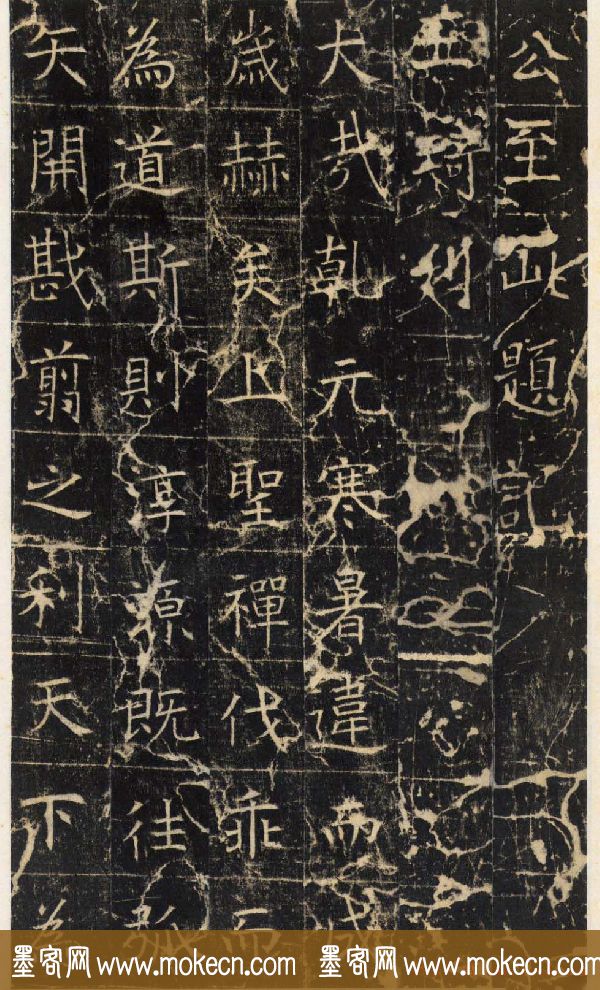 公至此題記
琦
大哉乾元寒暑違而成
歲赫矣上聖禪代乖而
為道斯則淳源既往
矢開戡翦之利天下為
墨客网 www.mokecn.com 墨客网 www.mokecn.com